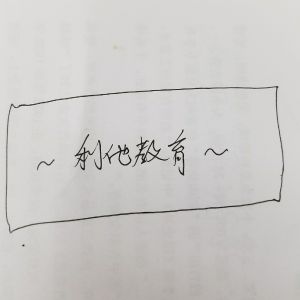 ~ 利他教育 ~